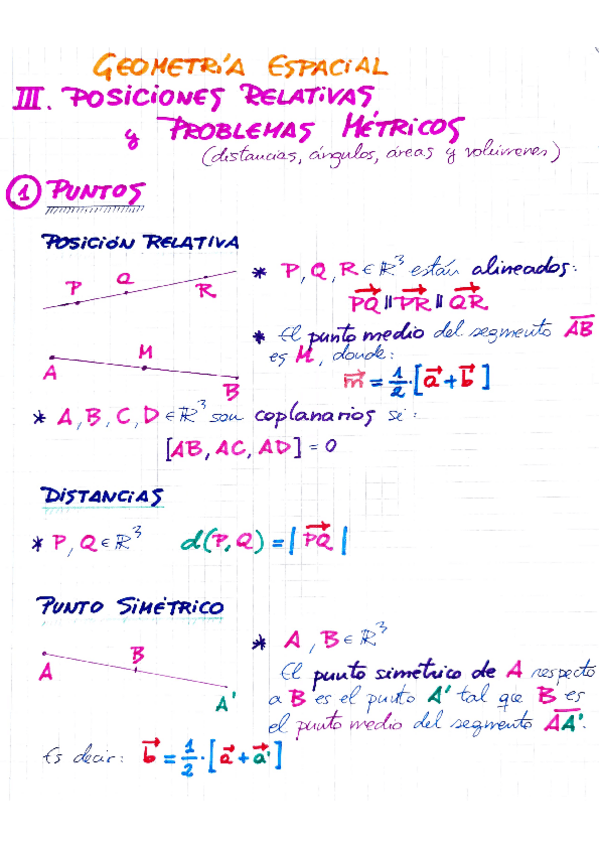 GEOMETRÍA ESPACIAL
III. POSICIONES RELATIVAS
y PROBLEMAS MÉTRICOS
(distancias, ángulos, áreas y volúmenes)
1 PUNTOS
POSICIÓN RELATIVA
P Q R
* P, Q, R ∈ ℝ³ están alineados:
PQ⃗ || PR⃗ || QR⃗
* El punto medio del segmento A̅B̅
es M, donde:
A M B
m⃗ = 1/2 · [a⃗ + b⃗]
* A, B, C, D ∈ ℝ³ son coplanarios si:
[AB, AC, AD] = 0
DISTANCIAS
* P, Q ∈ ℝ³ d(P, Q) = | PQ⃗ |
PUNTO SIMÉTRICO
A B A'
* A, B ∈ ℝ³
El punto simétrico de A respecto
a B es el punto A' tal que B es
el punto medio del segmento A̅A̅'.
Es decir: b⃗ = 1/2 · [a⃗ + a⃗']